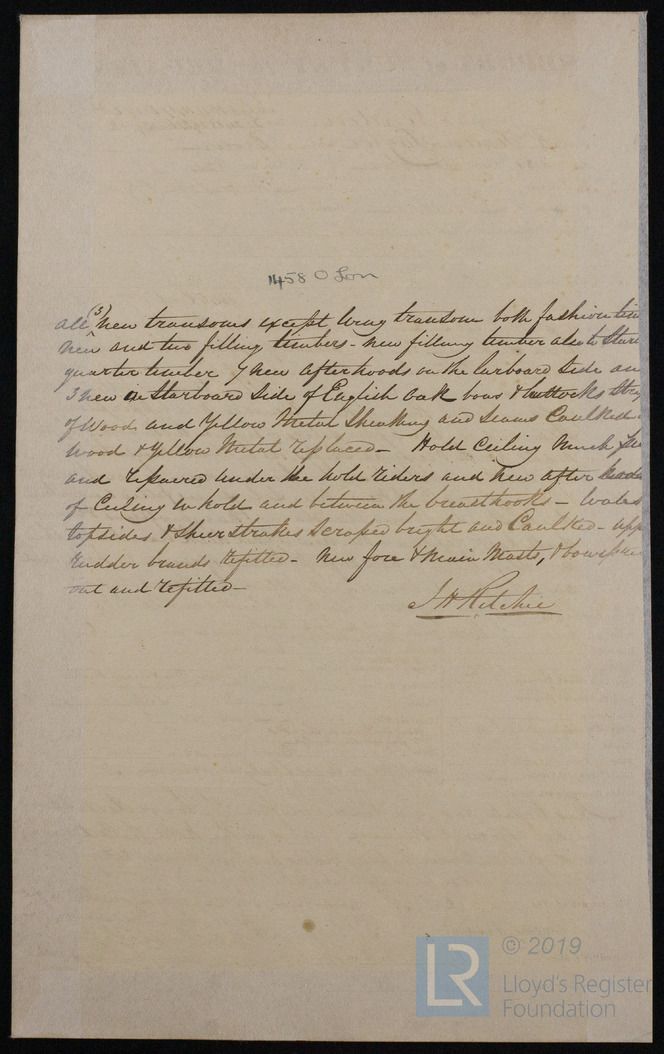 1458 O Lon
all (3) new transoms except wing transom both fashion tim
new and two filling timbers - new filling timber also to Star
quarter timber 7 new afterhoods on the larboard side an
3 new on Starboard Side of English Oak bows & buttocks
of Wood and Yellow Metal Sheathing and Seams Caulked
Wood & Yellow Metal replaced - Hold Ceiling much
and repaired under the hold riders and new after
of Ceiling in hold and between the breasthooks - Wales
topsides & Sheerstrakes Scraped bright and Caulked - upp
rudder brands refitted - New fore & main Masts, & bowsprit
out and refitted -
J H Ritchie
© 2019
LR Lloyd's Register
Foundation